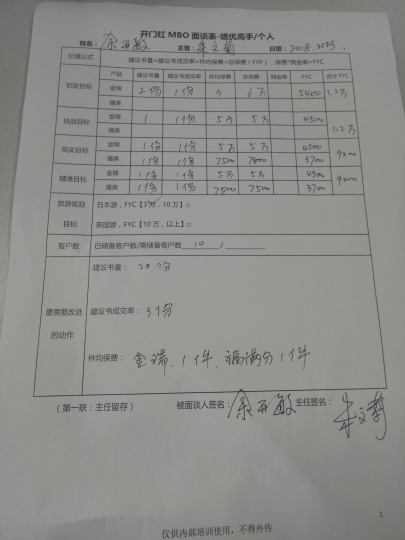 开门红 MBO 面谈表-绩优高手/个人
姓名： 余开敏 主管：朱文菊 日期：2018.
价值公式 建议书量×建议书成交率×件均保费=总保费（FYP），保费*佣金率=FYC
产品 建议书量 建议书成交率 件均保费 总保费 佣金率 FYC 合计 FYC
初定目标 金瑞 2份 1份 3 6万 5400 1.2万
福类
挑战目标 金瑞 1 1份 5万 5万 4500 1.2万
福类
锁定目标 金瑞 1份 1份 5万 5万 4500 9200
福类 1份 1份 7500 7500 3700
精准目标 金瑞 1份 1份 5万 5万 4500 9200
福类 1份 1份 7500 7500 3700
旅游奖励目标 日本游，FYC【3万，10万】○
英国游，FYC【10万，以上】○
客户数 已储备客户数/需储备客户数 10 /
最需要改进的动作 建议书量：20份
建议书成交率：3个份
件均保费：金瑞、1件、福满分1件
（第一联：主任留存） 被面谈人签名：余开敏 主任签名：朱文菊
1
仅供内部培训使用，不得外传